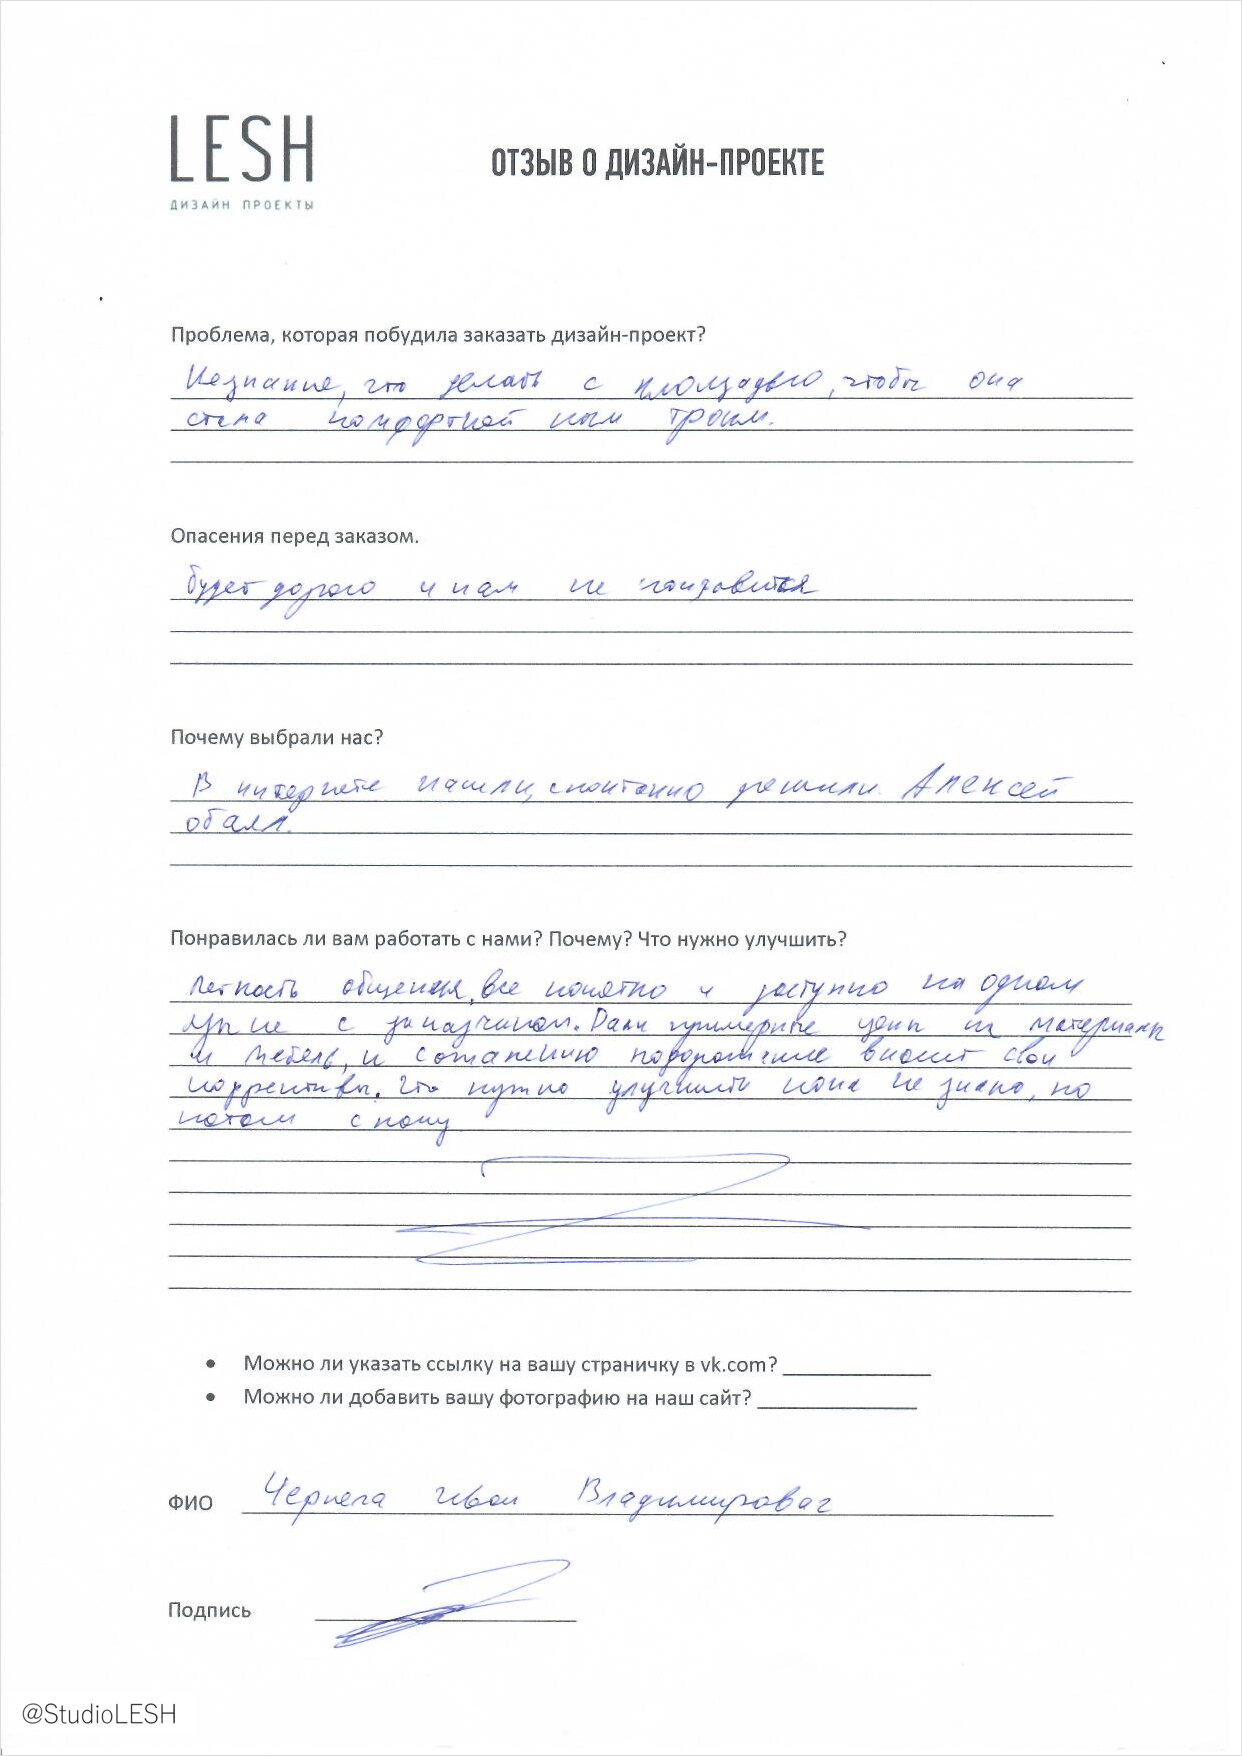 LESH
ДИЗАЙН ПРОЕКТЫ
ОТЗЫВ О ДИЗАЙН-ПРОЕКТЕ
Проблема, которая побудила заказать дизайн-проект?
Незнание, что делать с площадью, чтобы она
стала комфортной нам троим.
Опасения перед заказом.
будет дорого и нам не понравится
Почему выбрали нас?
В интернете нашли, спонтанно решили Алексей
обаял.
Понравилась ли вам работать с нами? Почему? Что нужно улучшить?
Легкость общения, все понятно и доступно на одном
с заказчиком. Дали примерные цены на материалы
и мебель, к сожалению подорожание вносит свои
коррективы. Что нужно улучшить пока не знаю, но
потом скажу
Можно ли указать ссылку на вашу страничку в vk.com?
Можно ли добавить вашу фотографию на наш сайт?
ФИО Чернега Иван Владимирович
Подпись
@StudioLESH